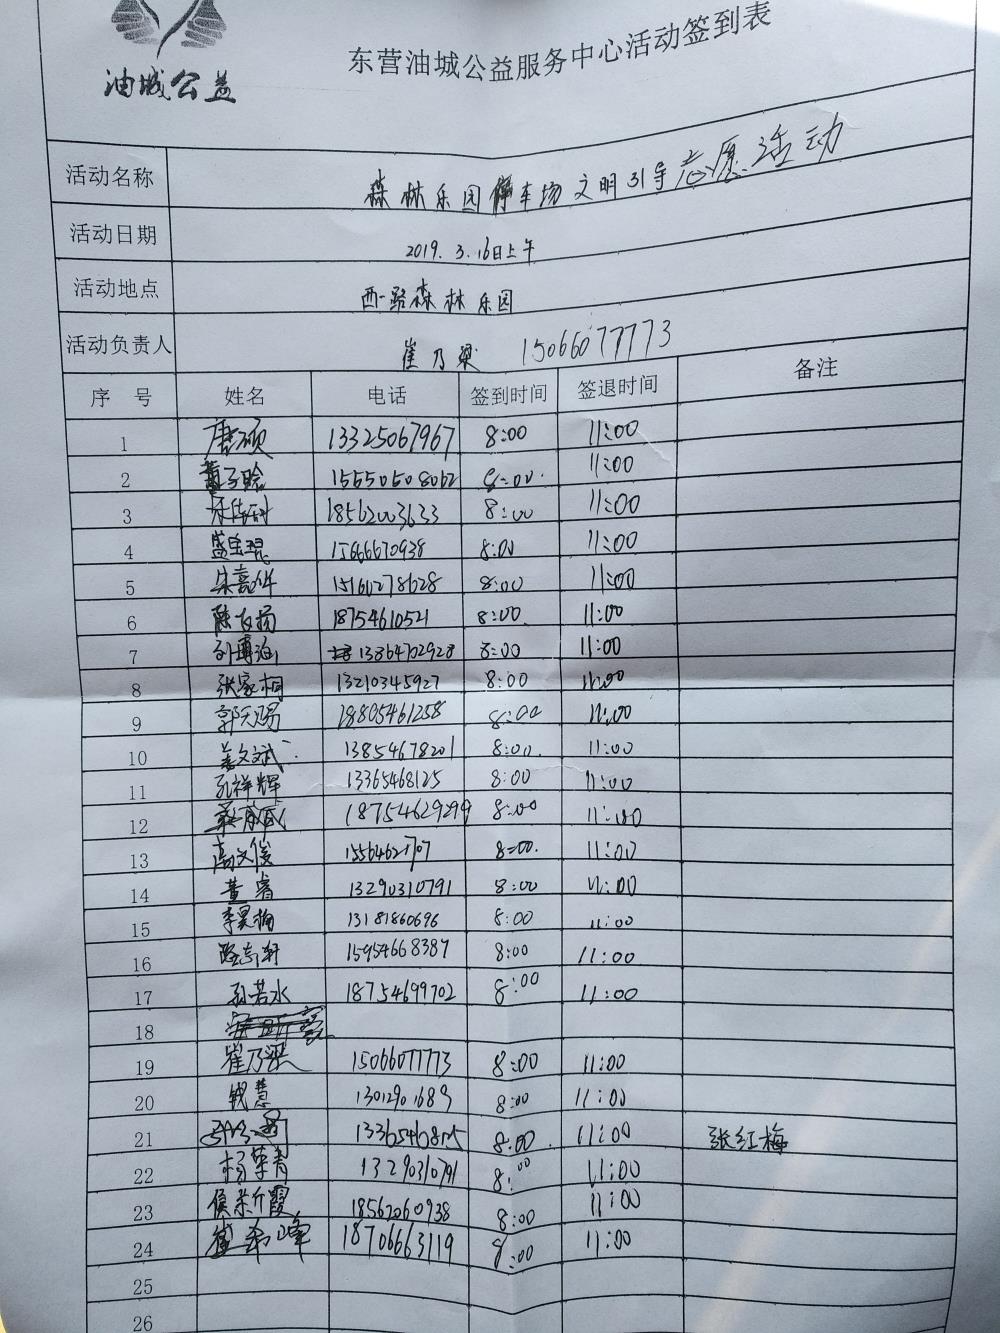 东营油城公益服务中心活动签到表
油城公益
活动名称 森林乐园停车场文明引导志愿活动
活动日期 2019.3.16日上午
活动地点 西一路森林乐园
活动负责人 崔乃梁 15066077773
序 号 姓名 电话 签到时间 签退时间 备注
1 唐硕 13325067967 8:00 11:00
2 15550508062 8:00 11:00
3 18562003633 8:00 11:00
4 盛宝琨 15666670938 8:00 11:00
5 15160278628 8:00 11:00
6 陈友扬 18754610521 8:00 11:00
7 刘博涵 13864702928 8:00 11:00
8 张家桐 13210345927 8:00 11:00
9 郭天赐 18805461258 8:00 11:00
10 姜文斌 13854678201 8:00 11:00
11 孔祥辉 13365468125 8:00 11:00
12 18754629299 8:00 11:00
13 高文俊 8:00 11:00
14 黄睿 13290310791 8:00 11:00
15 李昊楠 13181860696 8:00 11:00
16 路高轩 15954668387 8:00 11:00
17 孙若水 18754699702 8:00 11:00
18
19 崔乃梁 15066077773 8:00 11:00
20 钱慧 13012901689 8:00 11:00
21 8:00 11:00 张红梅
22 杨荣青 13290310791 8:00 11:00
23 18562060938 8:00 11:00
24 18706663119 8:00 11:00
25
26